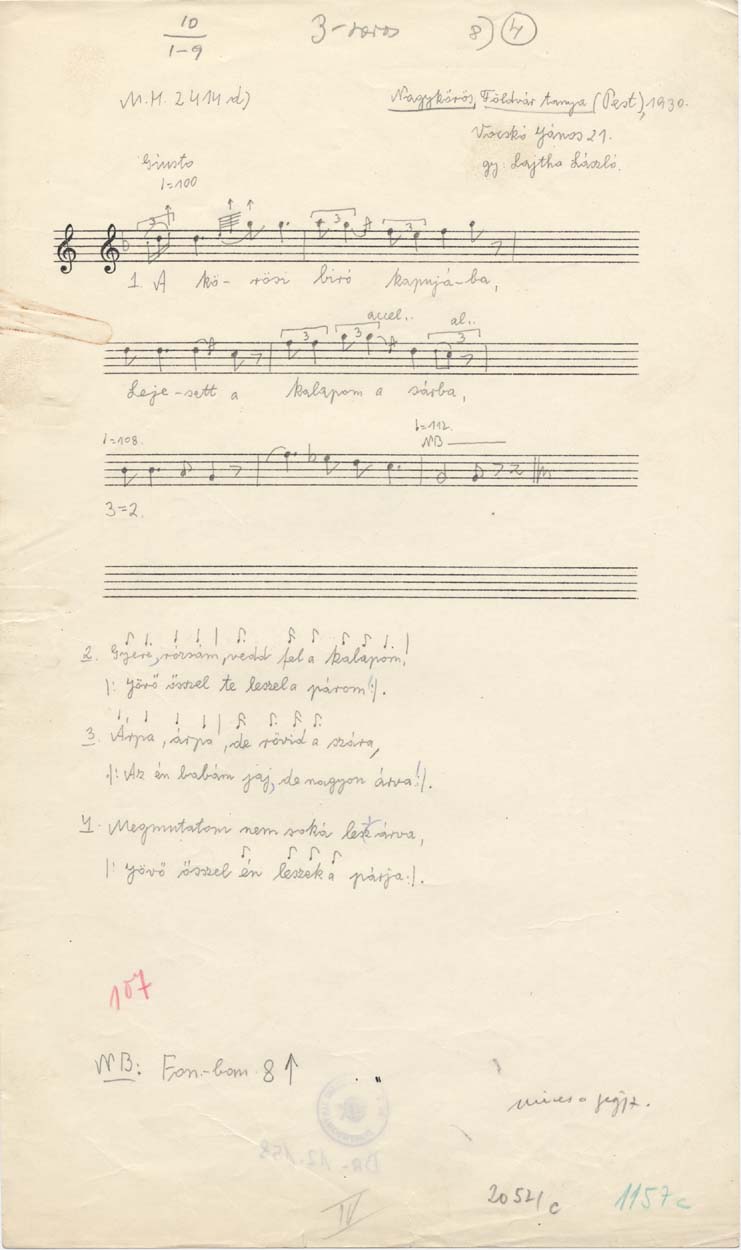 10
1-9
3-soros
8) 4
M.H. 2414 d)
Nagykőrös, Földvár tanya (Pest), 1930.
Vocskó János 21.
gy: Lajtha László.
Giusto
=100
3
3 3
1. A kö-rösi biró kapujá-ba,
accel.. al..
3 3 3
Leje-sett a kalapom a sárba,
=108. =112.
NB
3=2.
2. Gyere, rózsám, vedd fel a kalapom,
|: Jövő ősszel te leszel a párom! :|.
3. Árpa, árpa, de rövid a szára,
|: Az én babám jaj, de nagyon árva! :|.
4. Megmutatom nem soká lesz árva,
|: Jövő ősszel én leszek a párja :|.
107
NB: Fon.-ban 8↑
20521 c
1157 c
IV